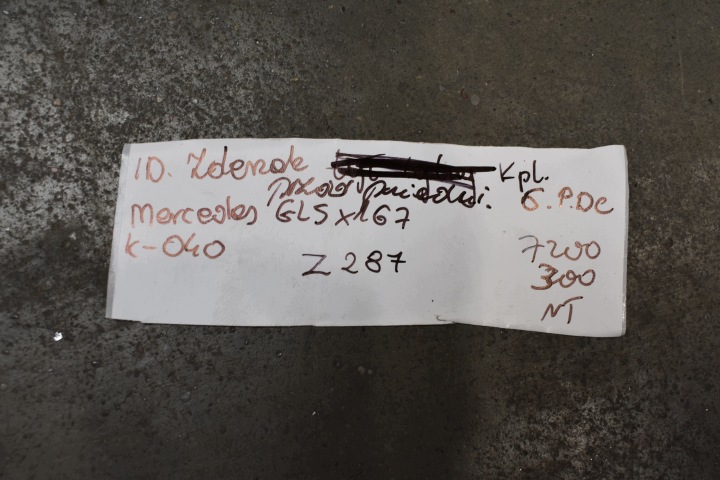 ID. Zderzak Kpl.
przód 6.PDC
Mercedes GLS x167
K-040 7200
Z 287 300
NT